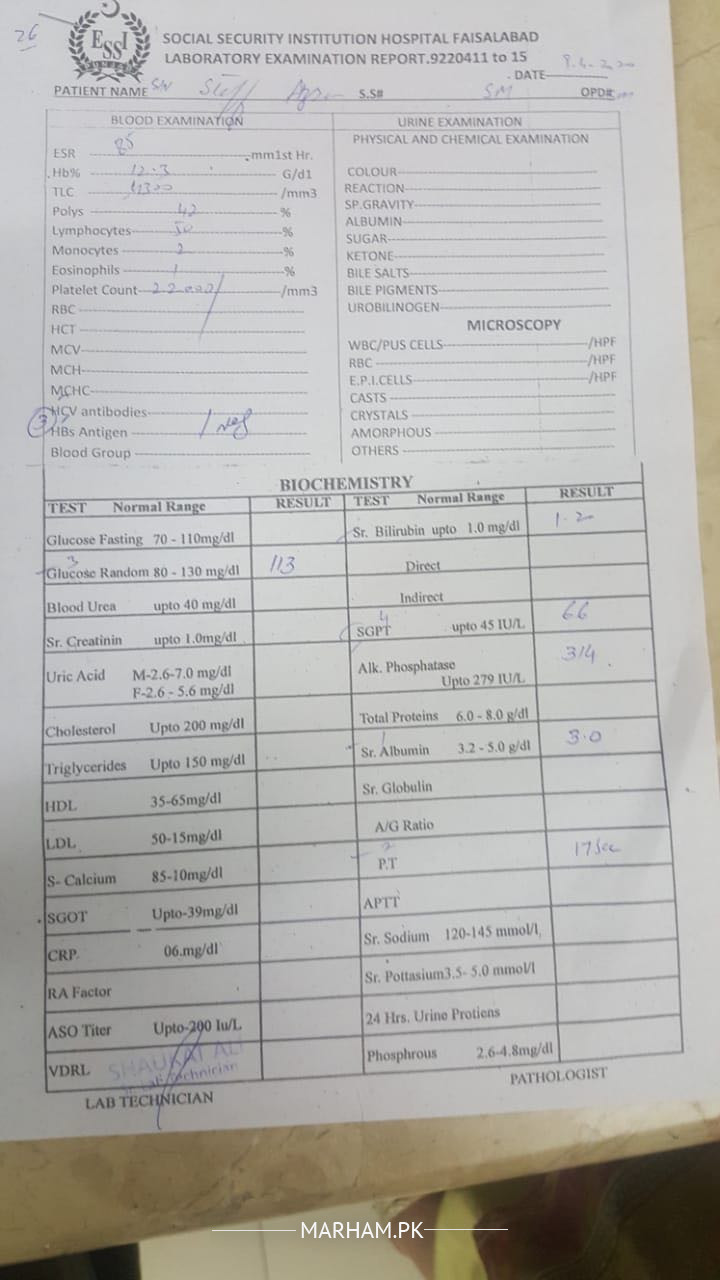 26
ESSI
PUNJAB
SOCIAL SECURITY INSTITUTION HOSPITAL FAISALABAD
LABORATORY EXAMINATION REPORT.9220411 to 15
DATE
PATIENT NAME S/N Staff S.S# SM OPD#
BLOOD EXAMINATION
ESR 85 mm1st Hr.
Hb% 12.3 G/d1
TLC /mm3
Polys 42 %
Lymphocytes 50 %
Monocytes 2 %
Eosinophils 1 %
Platelet Count /mm3
RBC
HCT
MCV
MCH
MCHC
3 HCV antibodies
HBs Antigen Neg
Blood Group
URINE EXAMINATION
PHYSICAL AND CHEMICAL EXAMINATION
COLOUR
REACTION
SP.GRAVITY
ALBUMIN
SUGAR
KETONE
BILE SALTS
BILE PIGMENTS
UROBILINOGEN
MICROSCOPY
WBC/PUS CELLS /HPF
RBC /HPF
E.P.I.CELLS /HPF
CASTS
CRYSTALS
AMORPHOUS
OTHERS
BIOCHEMISTRY
TEST Normal Range RESULT
Glucose Fasting 70 - 110mg/dl
3
Glucose Random 80 - 130 mg/dl 113
Blood Urea upto 40 mg/dl
Sr. Creatinin upto 1.0mg/dl
Uric Acid M-2.6-7.0 mg/dl
F-2.6 - 5.6 mg/dl
Cholesterol Upto 200 mg/dl
Triglycerides Upto 150 mg/dl
HDL 35-65mg/dl
LDL 50-15mg/dl
S- Calcium 85-10mg/dl
SGOT Upto-39mg/dl
CRP 06.mg/dl
RA Factor
ASO Titer Upto-200 Iu/L
VDRL
TEST Normal Range RESULT
Sr. Bilirubin upto 1.0 mg/dl 1.20
Direct
Indirect
4
SGPT upto 45 IU/L 66
Alk. Phosphatase 314
Upto 279 IU/L
Total Proteins 6.0 - 8.0 g/dl
1
Sr. Albumin 3.2 - 5.0 g/dl 3.0
Sr. Globulin
A/G Ratio
2
P.T 17 Sec
APTT
Sr. Sodium 120-145 mmol/l,
Sr. Pottasium3.5- 5.0 mmol/l
24 Hrs. Urine Protiens
Phosphrous 2.6-4.8mg/dl
SHAUKAT ALI
Lab Technician
LAB TECHNICIAN
PATHOLOGIST
MARHAM.PK